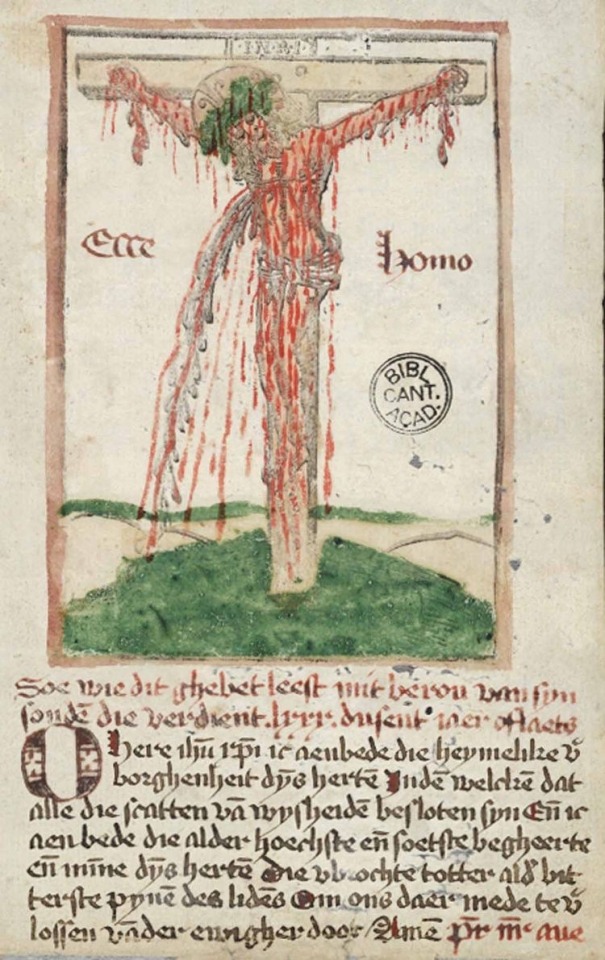 I·N·R·I
Ecce
homo
BIBL
CANT.
ACAD.
Soe wie dit ghebet leest mit berou van syn
sondē die verdient .lxxx. dusent iaer oflaets
O here ihū xp̄i ic aenbede die heymelike v̄
borghenheit dȳs hertē Indē welckē dat
alle die scatten vā wysheidē besloten syn Eñ ic
aenbede die alder hoechste eñ soetste begheerte
eñ mīne dȳs hertē Die v brochte totter ald̄ bit
terste pynē des lidēs Om ons daer mede te v̄
lossen vā der ewigher doot / Amē pr̄ nr̄ aue